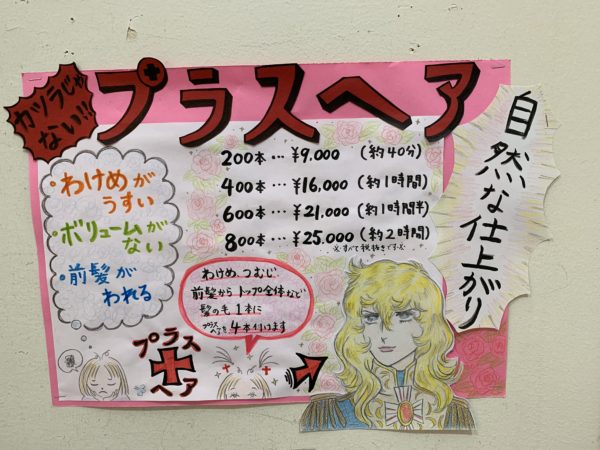 カツラじゃ
ない!!
プラスヘア
自然な仕上がり
・わけめが
うすい
・ボリュームが
ない
・前髪が
われる
200本…¥9,000(約40分)
400本…¥16,000(約1時間)
600本…¥21,000(約1時間半)
800本…¥25,000(約2時間)
※すべて税抜きです※
わけめ、つむじ
前髪からトップ全体など
髪の毛1本に
プラスヘアを4本付けます
プラス
ヘア